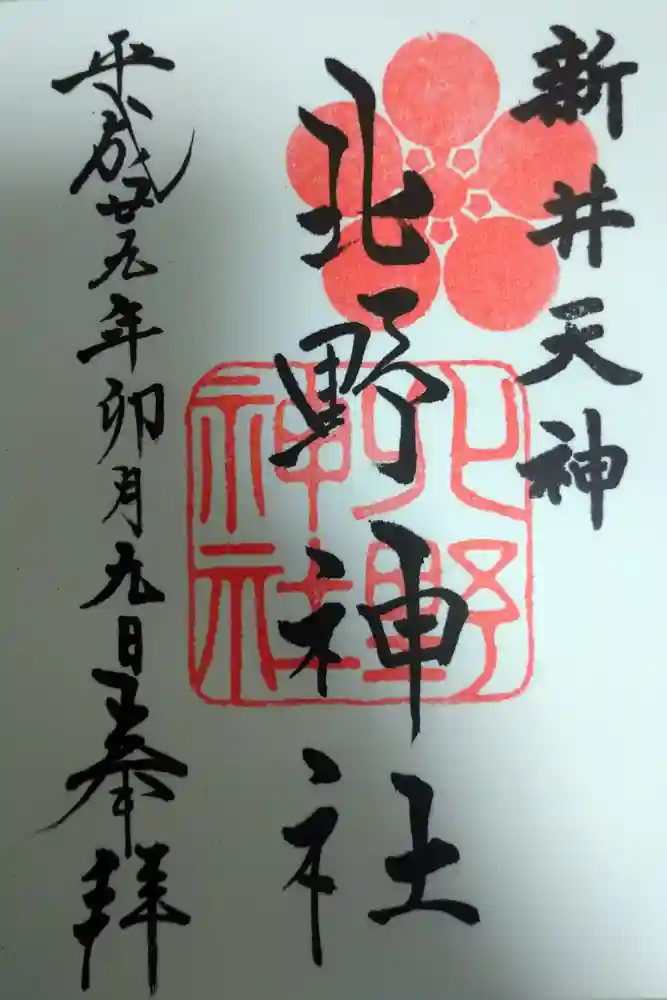 新井天神
北野神社
平成廿九年卯月九日奉拝
北野
神社